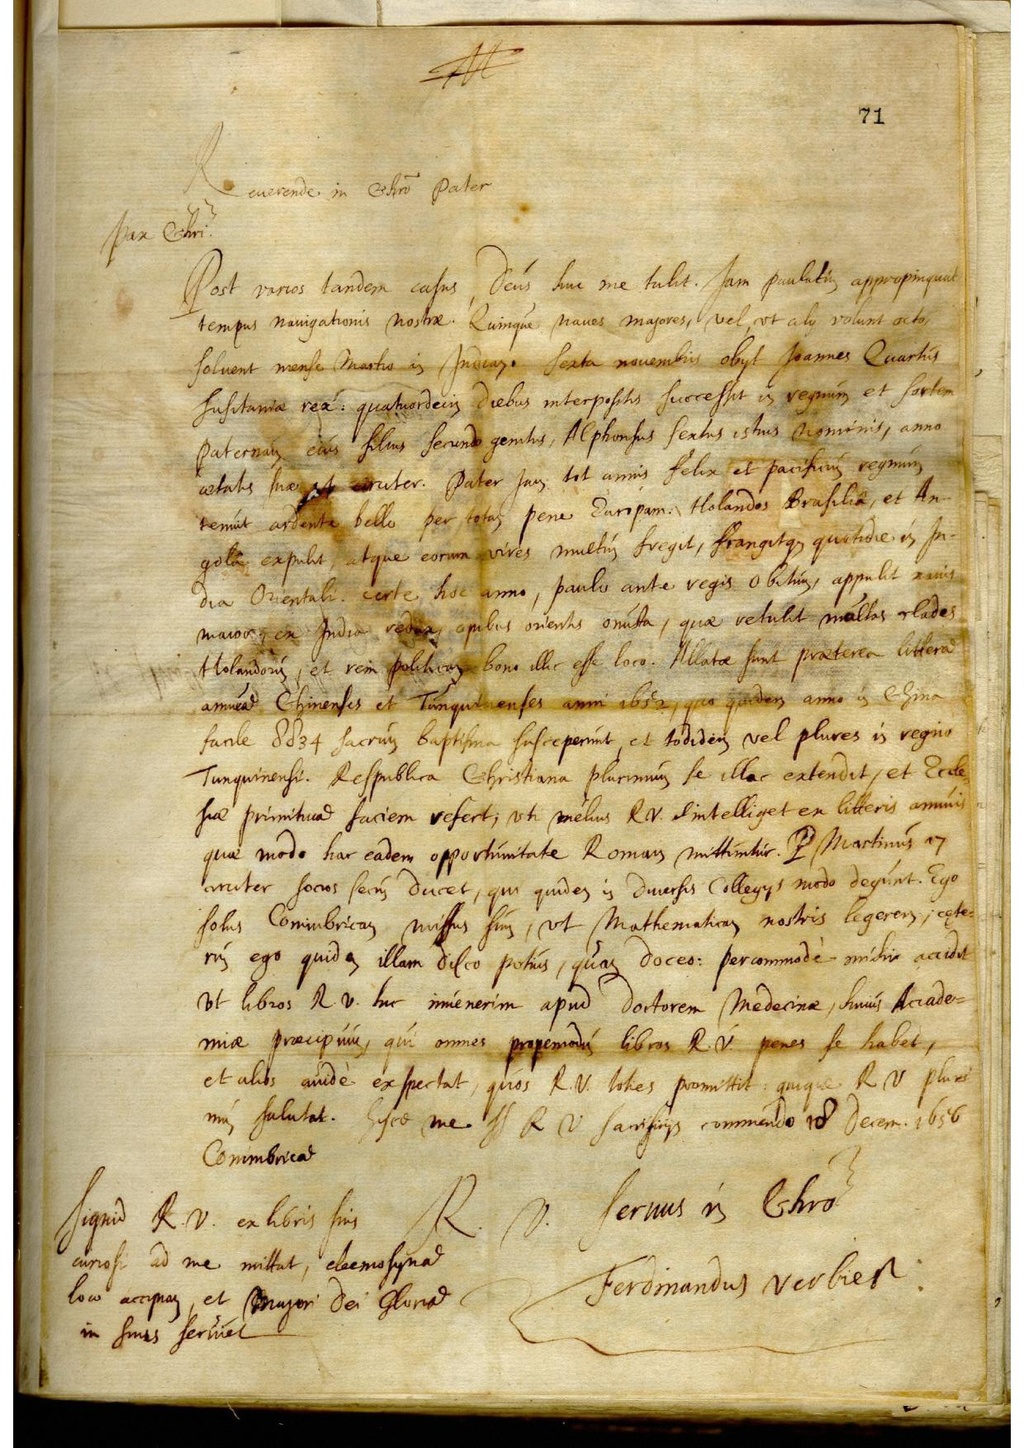 71
Reuerende in Chro Pater
Pax Chri.
Post varios tandem casus, Deus huc me tulit. Jam paulatim appropinquat
tempus nauigationis nostræ. Quinque naues majores, vel, vt alij volunt octo,
soluent mense Martio in Indiam. Sexta nouembris obijt Joannes Quartus
Lusitaniæ rex: quatuordecim diebus interpositis successit in regnum et sortem
paternam eius filius secundo genitus, Alphonsus sextus istius nominis, anno
ætatis suæ circiter. Pater jam tot annis felix et pacificum regnum
tenuit ardente bello per totam pene Europam. Holandos Brasiliâ, et An-
golâ expulit, atque eorum vires multum fregit, frangitque quotidie in In-
dia Orientali. certe hoc anno, paulo ante regis obitum, appulit nauis
maior, ex India redux, opibus orientis onusta, quæ retulit multas clades
Holandorum, et rem politicam bono illic esse loco. Allatæ sunt præterea litteræ
annuæ Chinenses et Tunquinenses anni 1652, quo quidem anno in China
facile 8834 sacrum baptisma susceperunt, et totidem vel plures in regno
Tunquinensi. Respublica Christiana plurimum se illac extendit, et Eccle-
siæ primitiuæ faciem refert; vti melius R.V. intelliget ex litteris annuis
quæ modo hac eadem opportunitate Romam mittuntur. P Martinus 17
circiter socios secum ducet, qui quidem in diuersis Collegijs modo degunt. Ego
solus Conimbricam missus sum, vt Mathematicam nostris legerem; cęte-
rum ego quidem illam disco potius, quam doceo: percommodè mihi accidit
vt libros R.V. hic inuenerim apud doctorem Medecinæ, huius Acade=
miæ præcipuum, qui omnes propemodum libros R.V. penes se habet,
et alios auidè expectat, quos R.V. toties promittit: quique R V pluri
mum salutat. Hisce me SS R V sacrificijs commendo 18 Decem. 1656
Conimbricæ
R. V. seruus in Chro
Ferdinandus verbiest
Siquid R.V. ex libris suis
curiosi ad me mittat, eleemosynæ
loco accipiam, et majori Dei Gloriæ
in seruiet